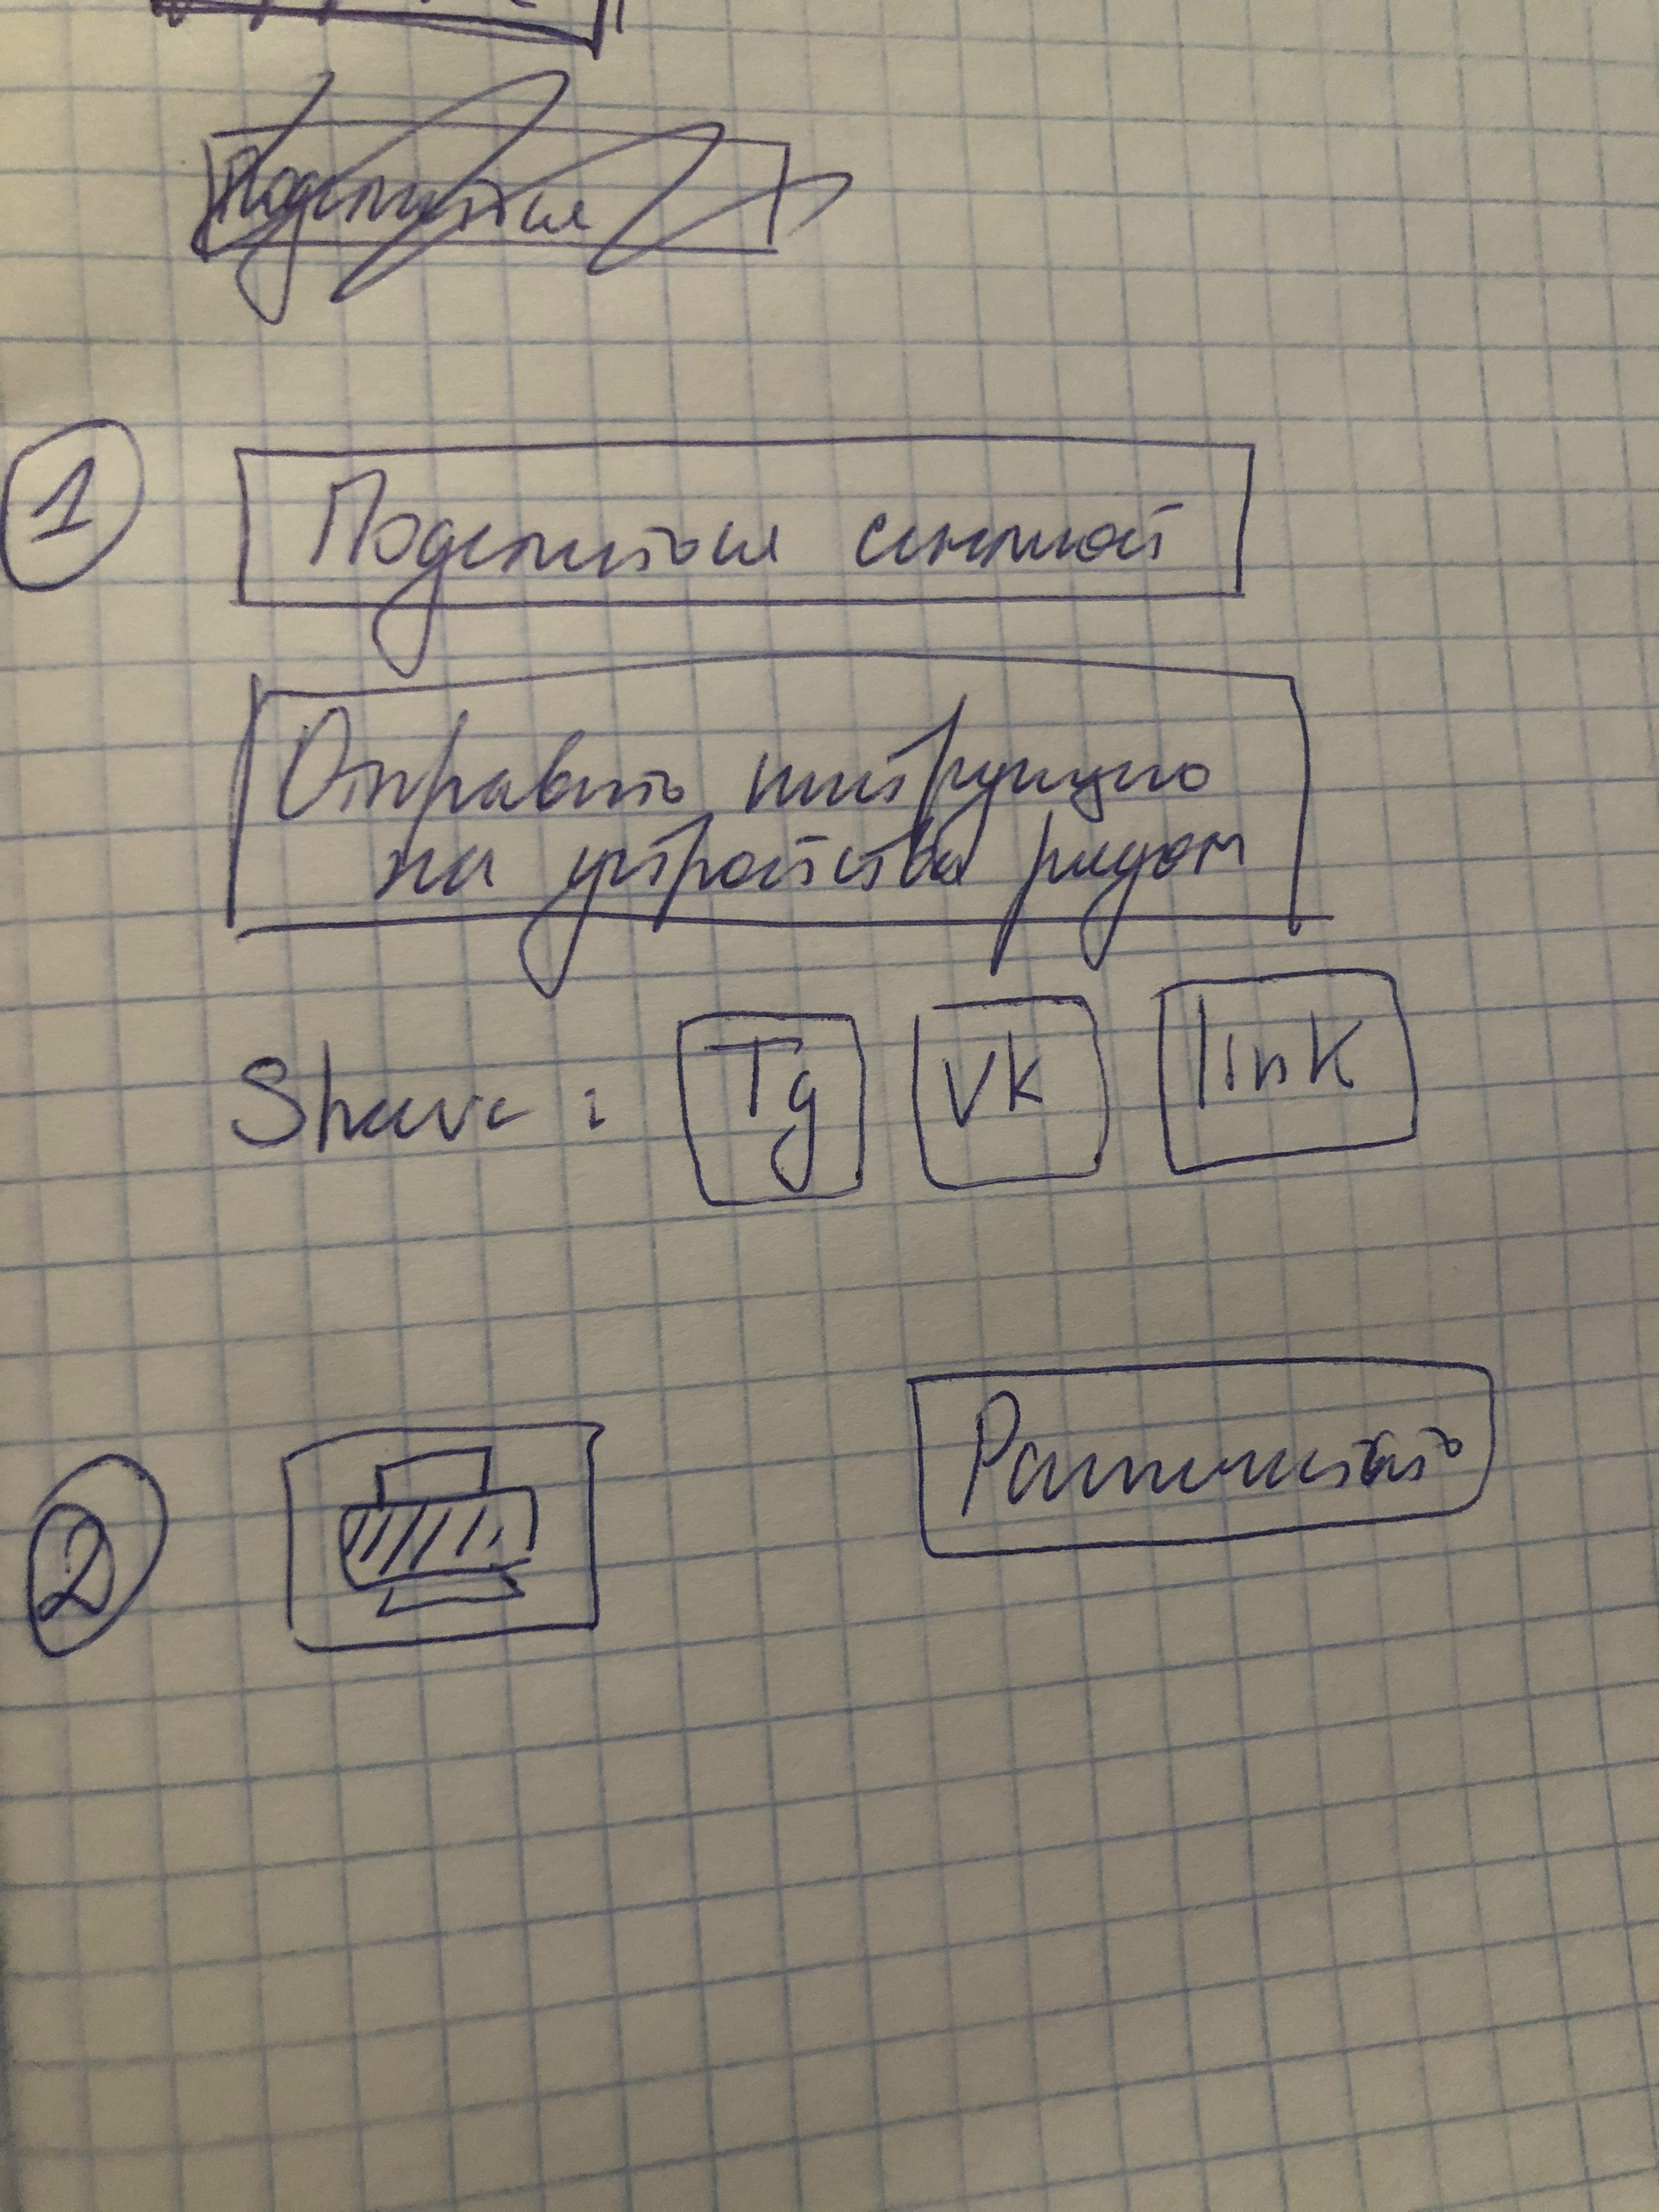 Поделиться
1 Поделиться ссылкой
Отправить инструкцию
на устройства рядом
Share: Tg Vk link
2 Распечатать